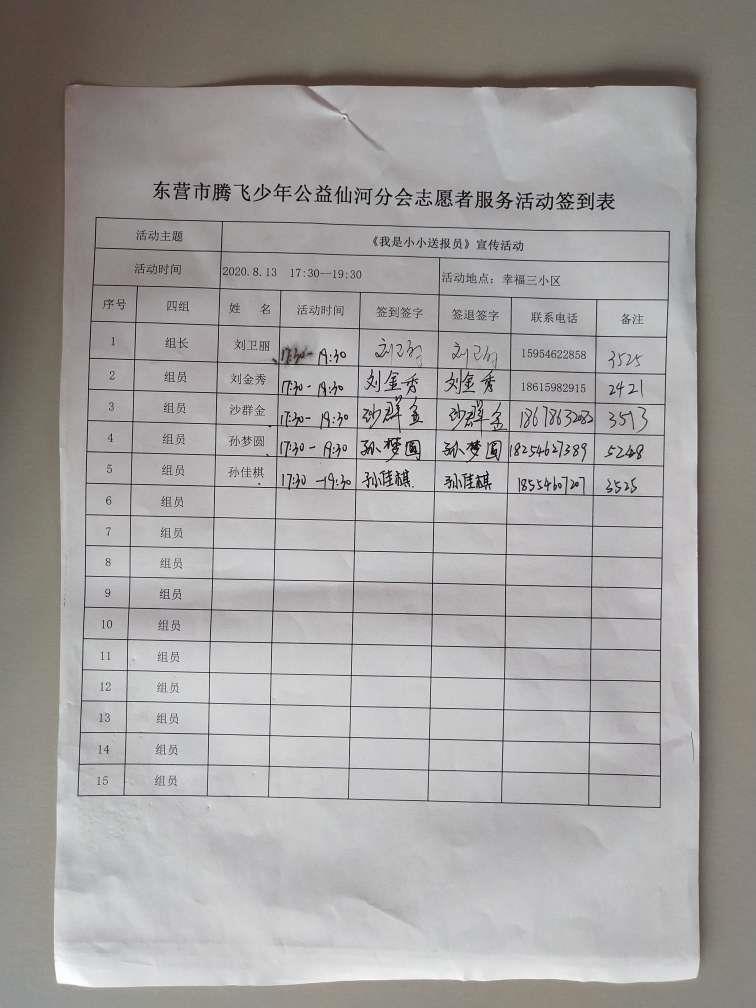 东营市腾飞少年公益仙河分会志愿者服务活动签到表
活动主题 《我是小小送报员》宣传活动
活动时间 2020.8.13 17:30—19:30 活动地点：幸福三小区
序号 四组 姓 名 活动时间 签到签字 签退签字 联系电话 备注
1 组长 刘卫丽 17:30-19:30 刘卫丽 刘卫丽 15954622858 3525
2 组员 刘金秀 17:30-19:30 刘金秀 刘金秀 18615982915 2421
3 组员 沙群金 17:30-19:30 沙群金 沙群金 3513
4 组员 孙梦圆 17:30-19:30 孙梦圆 孙梦圆 18254627389 5248
5 组员 孙佳棋 17:30-19:30 孙佳棋 孙佳棋 18554607207 3525
6 组员
7 组员
8 组员
9 组员
10 组员
11 组员
12 组员
13 组员
14 组员
15 组员